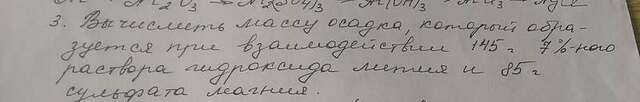 3. Вычислить массу осадка, который обра-
зуется при взаимодействии 145 г 7%-ного
раствора гидроксида лития и 85 г
сульфата магния.